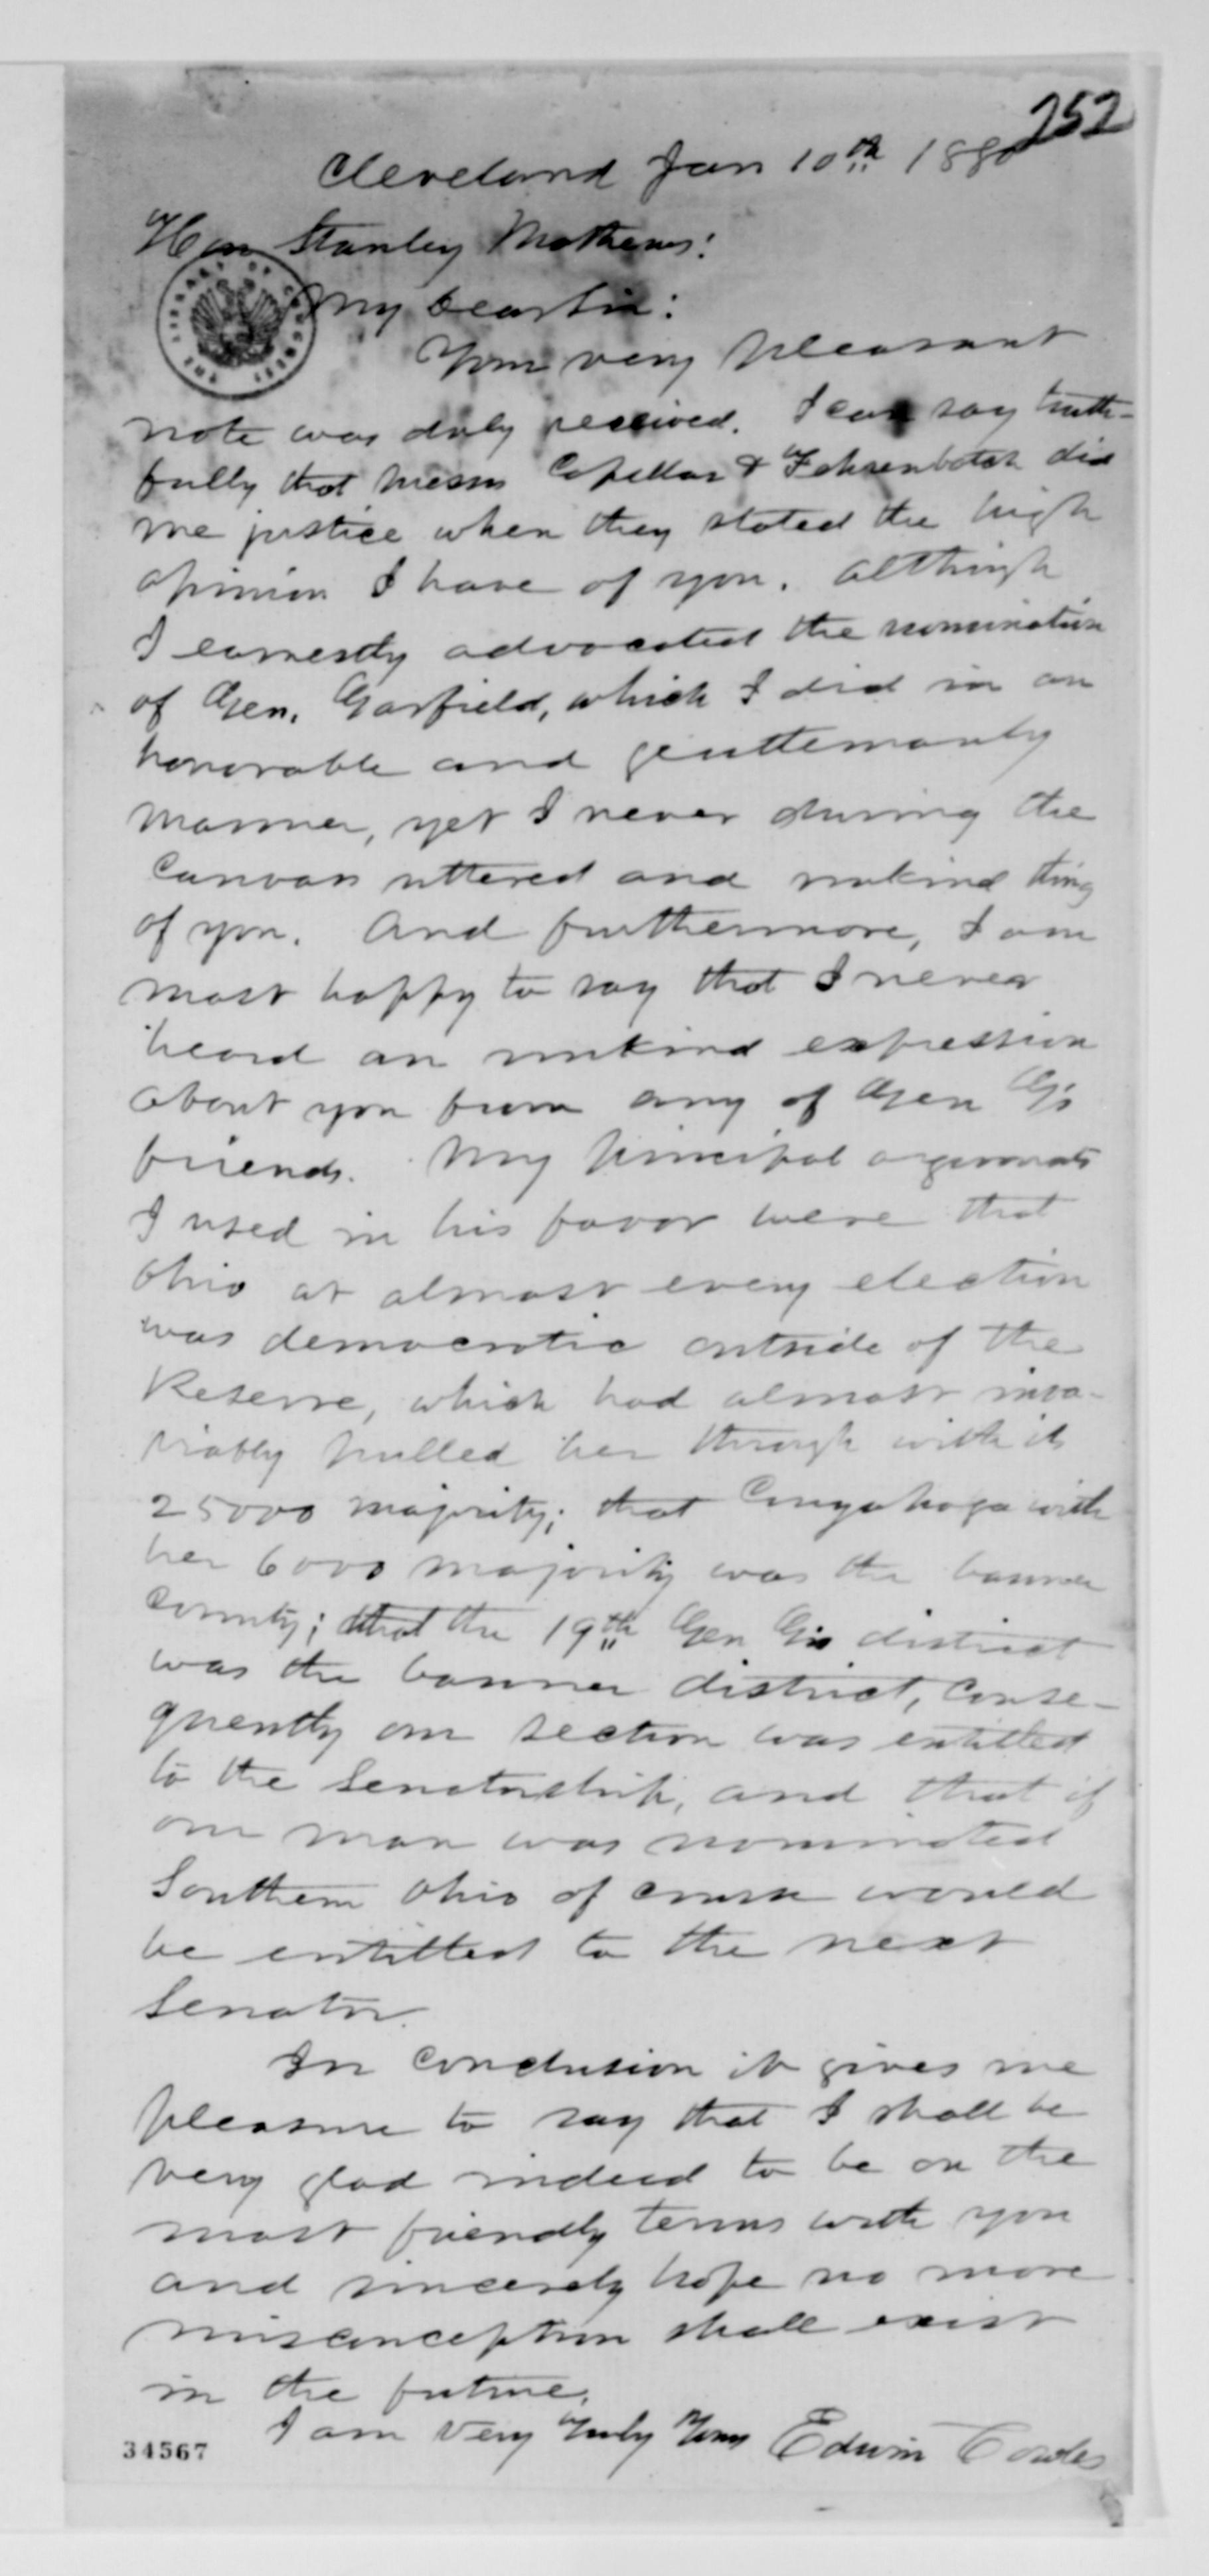 252
Cleveland Jan 10th 1880
Hon Stanley Mathews:
My Dear Sir:
Your very pleasant
note was duly received. I can say truth-
fully that Messrs Capellar & Fehrenbatch did
me justice when they stated the high
opinion I have of you. Although
I earnestly advocated the nomination
of Gen. Garfield, which I did in an
honorable and gentlemanly
manner, yet I never during the
canvass uttered and unkind thing
of you. And furthermore, I am
most happy to say that I never
heard an unkind expression
about you from any of Gen G's
friends. My principal arguments
I used in his favor were that
Ohio at almost every election
was democratic outside of the
Reserve, which had almost inva-
riably pulled her through with its
25000 majority; that Cuyahoga with
her 6000 majority was the banner
County; that the 19th Gen G's district
was the banner district, conse-
quently our section was entitled
to the Senatorship, and that if
our man was nominated
Southern Ohio of course would
be entitled to the next
Senator.
In conclusion it gives me
pleasure to say that I shall be
very glad indeed to be on the
most friendly terms with you
and sincerely hope no more
misconception shall exist
in the future.
I am very truly yours Edwin Cowles
34567
THE LIBRARY OF CONGRESS